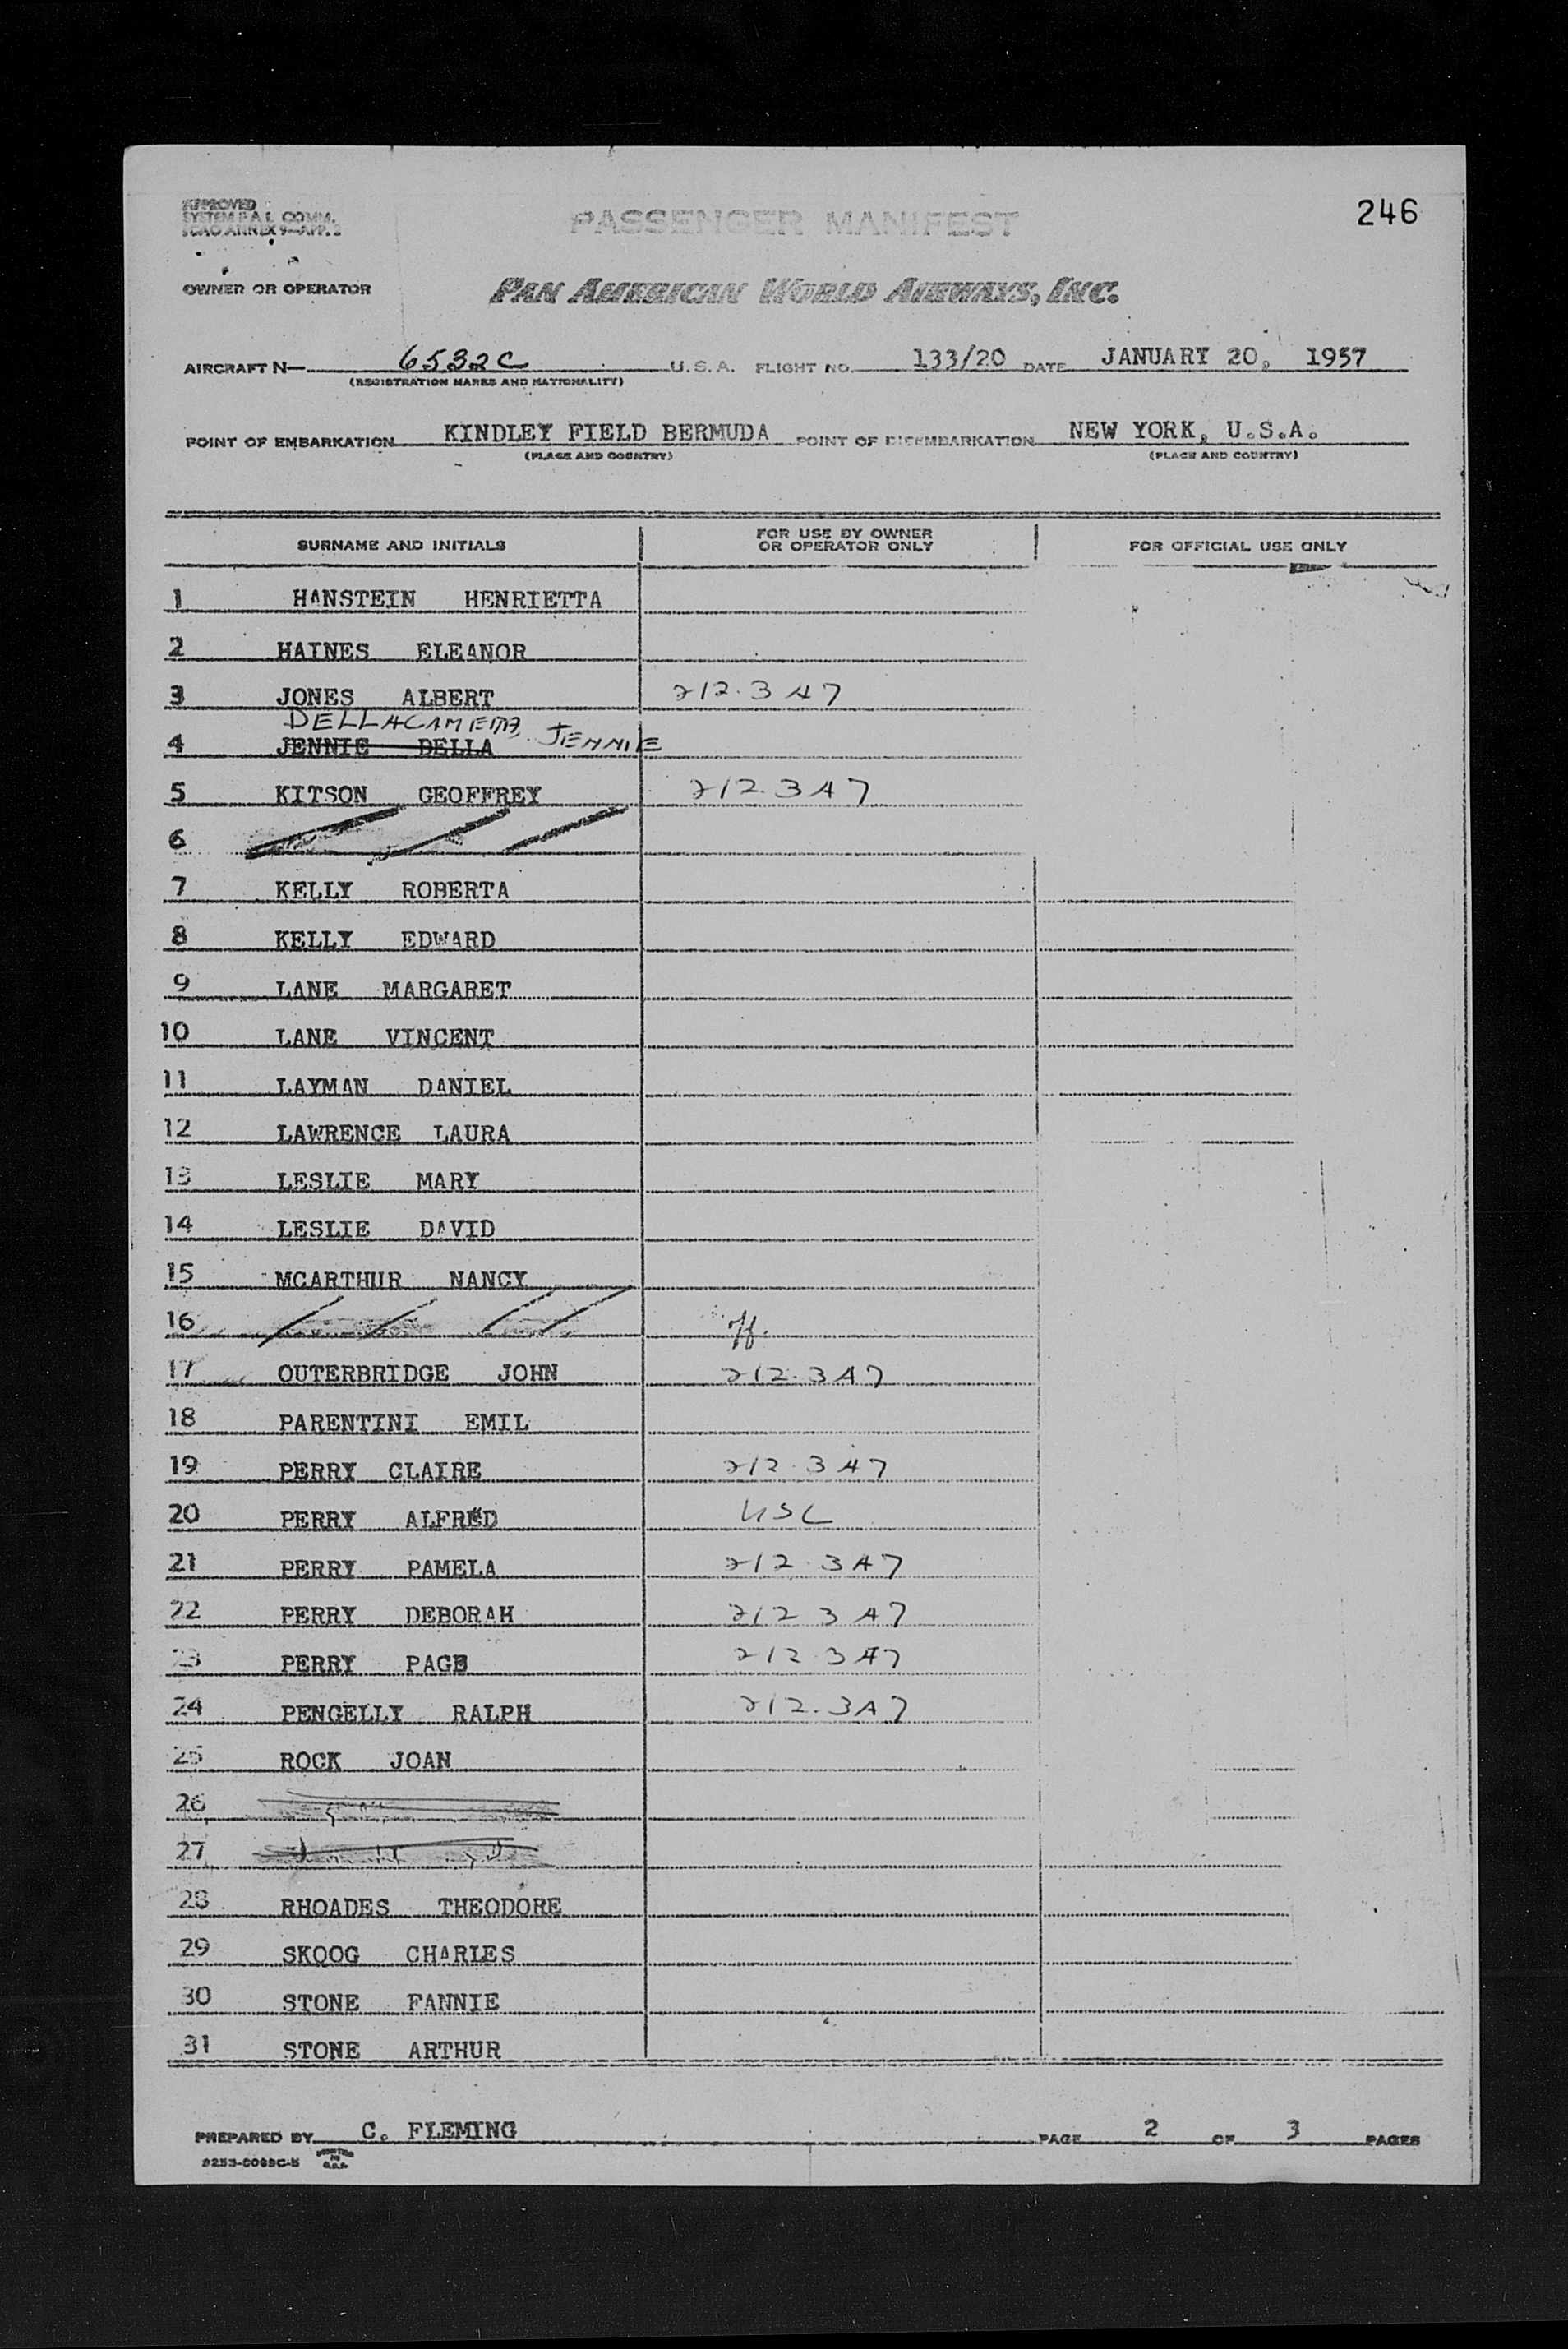 246
APPROVED
SYSTEM P.A.I. COMM.
ICAO ANNEX 9—APP. 2
PASSENGER MANIFEST
OWNER OR OPERATOR PAN AMERICAN WORLD AIRWAYS, INC.
AIRCRAFT N— 6532C U.S.A. FLIGHT NO. 133/20 DATE JANUARY 20, 1957
(REGISTRATION MARKS AND NATIONALITY)
POINT OF EMBARKATION KINDLEY FIELD BERMUDA POINT OF DISEMBARKATION NEW YORK, U.S.A.
(PLACE AND COUNTRY) (PLACE AND COUNTRY)
SURNAME AND INITIALS FOR USE BY OWNER OR OPERATOR ONLY FOR OFFICIAL USE ONLY
1 HANSTEIN HENRIETTA
2 HAINES ELEANOR
3 JONES ALBERT 212.3 A7
DELLACAMERA, JENNIE
4 JENNIE DELLA
5 KITSON GEOFFREY 212.3A7
6
7 KELLY ROBERTA
8 KELLY EDWARD
9 LANE MARGARET
10 LANE VINCENT
11 LAYMAN DANIEL
12 LAWRENCE LAURA
13 LESLIE MARY
14 LESLIE DAVID
15 MCARTHUR NANCY
16
17 OUTERBRIDGE JOHN 212.3A7
18 PARENTINI EMIL
19 PERRY CLAIRE 212.3A7
20 PERRY ALFRED USC
21 PERRY PAMELA 212.3A7
22 PERRY DEBORAH 212 3 A7
23 PERRY PAGE 212.3A7
24 PENGELLY RALPH 212.3A7
25 ROCK JOAN
26
27
28 RHOADES THEODORE
29 SKOOG CHARLES
30 STONE FANNIE
31 STONE ARTHUR
PREPARED BY C. FLEMING PAGE 2 OF 3 PAGES